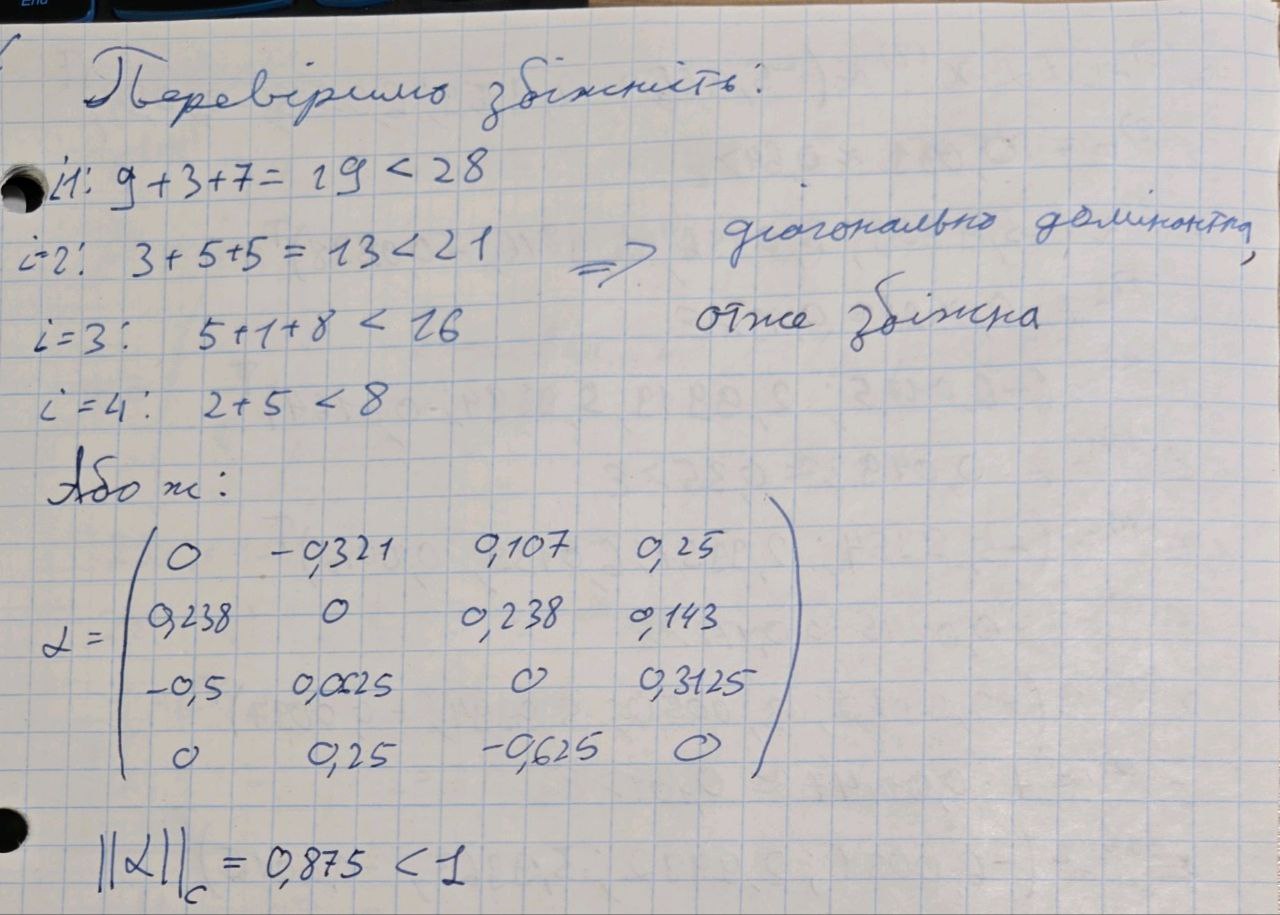 End
Перевіримо збіжність:
i1: 9 + 3 + 7 = 19 < 28
i=2: 3 + 5 + 5 = 13 < 21
⇒ діагонально домінантна,
i=3: 5 + 1 + 8 < 16
отже збіжна
i=4: 2 + 5 < 8
Або ж:
α =
0 -0,321 0,107 0,25
0,238 0 0,238 0,143
-0,5 0,0625 0 0,3125
0 0,25 -0,625 0
||α||c = 0,875 < 1